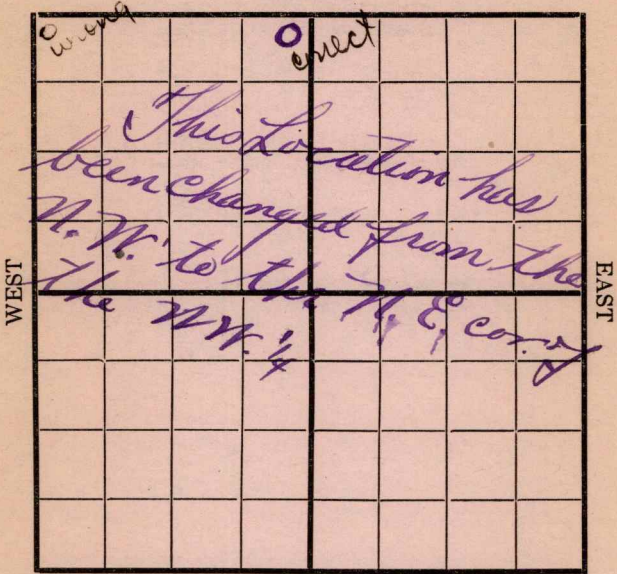 wrong
correct
This Location has
been changed from the
N.W. to the N.E. cor. of
the NW. 1/4
WEST
EAST